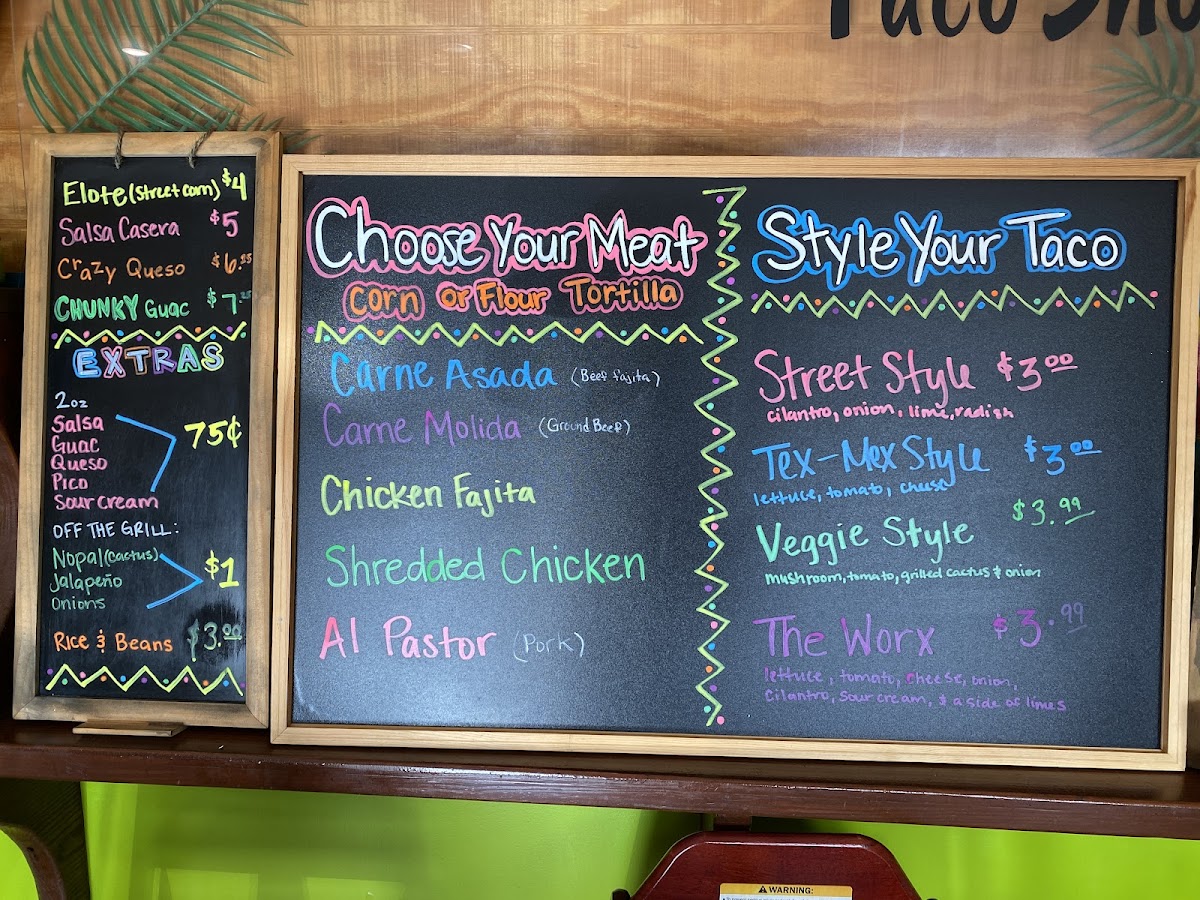 Taco Sho
Elote (Street corn) $4
Salsa Casera $5
Crazy Queso $6.25
CHUNKY Guac $7.25
EXTRAS
2oz
Salsa
Guac
Queso
Pico
Sour cream
75¢
OFF THE GRILL:
Nopal (cactus)
Jalapeño
Onions
$1
Rice & Beans $3.00
Choose Your Meat
corn or Flour Tortilla
Carne Asada (Beef fajita)
Carne Molida (Ground Beef)
Chicken Fajita
Shredded Chicken
Al Pastor (Pork)
Style Your Taco
Street Style $3.00
cilantro, onion, lime, radish
Tex-Mex Style $3.00
lettuce, tomato, cheese
Veggie Style $3.99
mushroom, tomato, grilled cactus & onion
The Worx $3.99
lettuce, tomato, cheese, onion,
cilantro, sour cream, & a side of limes
WARNING: